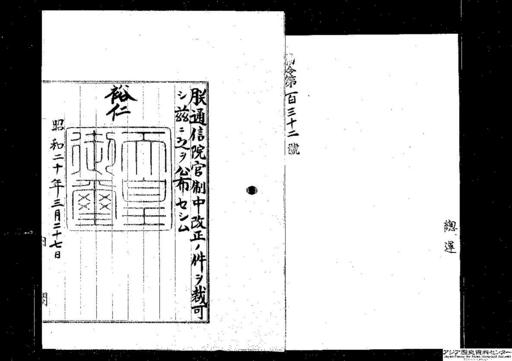 勅令第百三十二號
總運
朕通信院官制中改正ノ件ヲ裁可
シ茲ニ之ヲ公布セシム
裕仁
天皇御璽
昭和二十年三月二十七日
内閣
アジア歴史資料センター